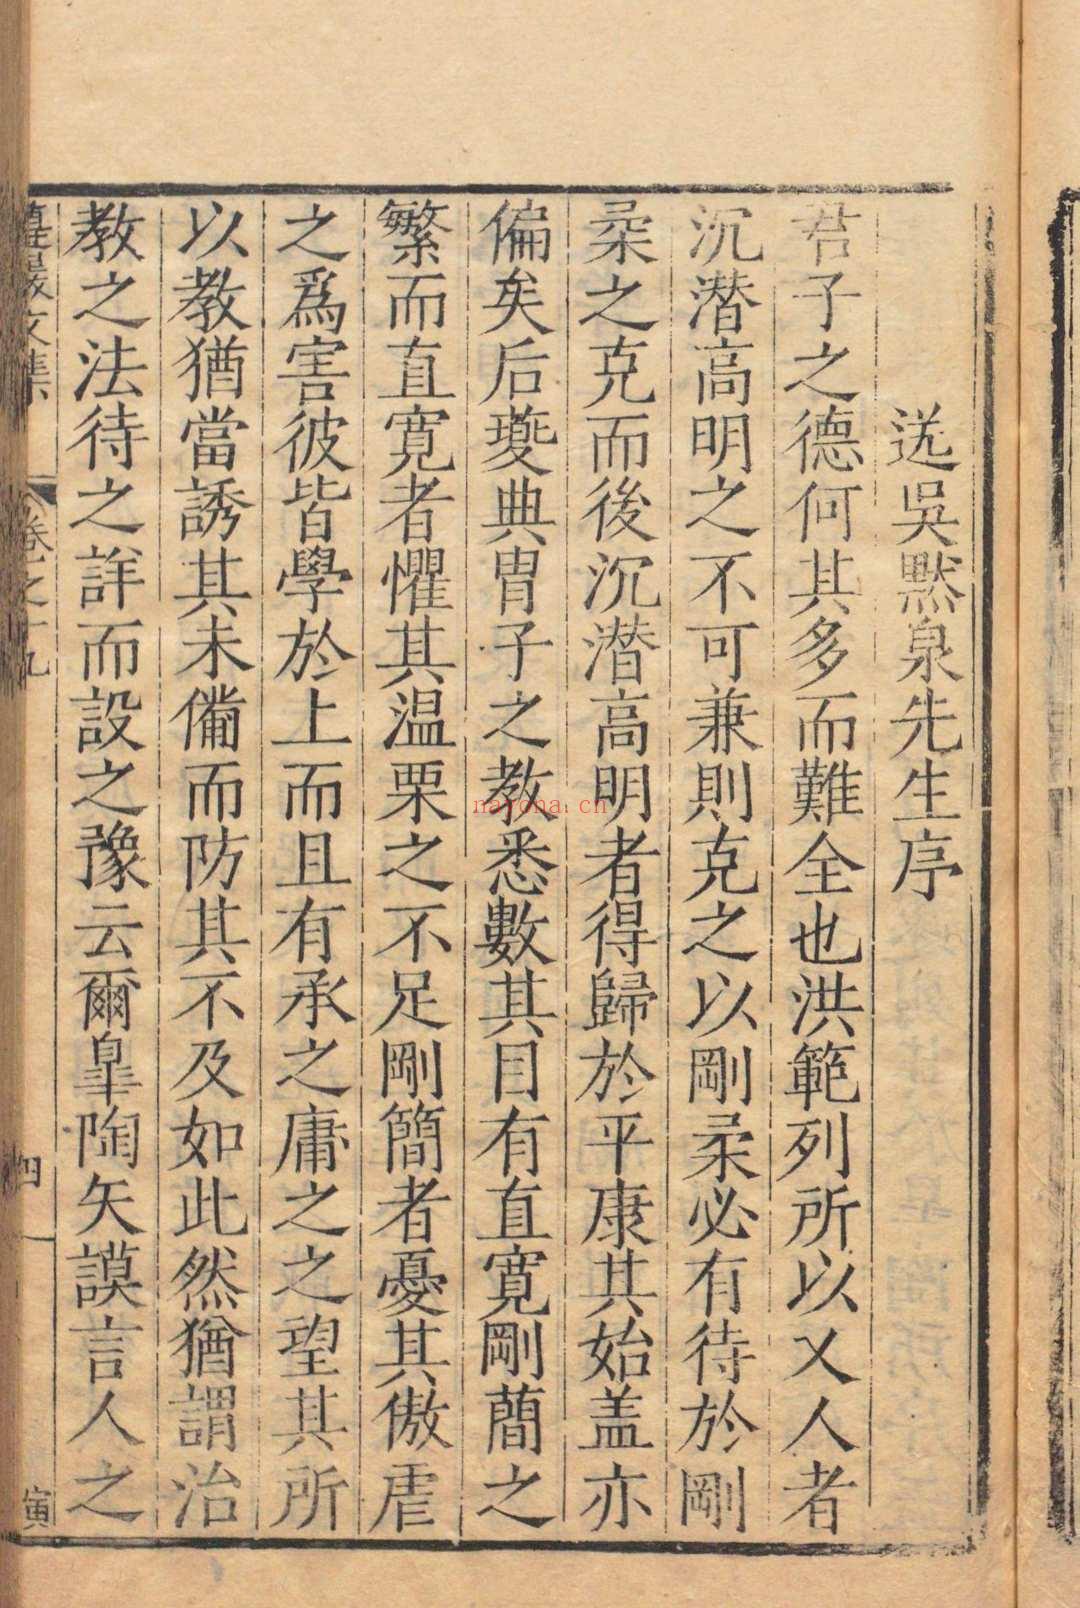 送吳默泉先生序
君子之德何其多而難全也洪範列所以乂人者
沉潛高明之不可兼則克之以剛柔必有待於剛
柔之克而後沉潛高明者得歸於平康其始盖亦
偏矣后夔典胄子之教悉數其目有直寛剛簡之
繁而直寛者懼其温栗之不足剛簡者憂其傲虐
之爲害彼皆學於上而且有承之庸之之望其所
以教猶當誘其未備而防其不及如此然猶謂治
教之法待之詳而設之豫云爾臯陶矢謨言人之
遵巖文集 卷之十九 四 寅
nayona.cn